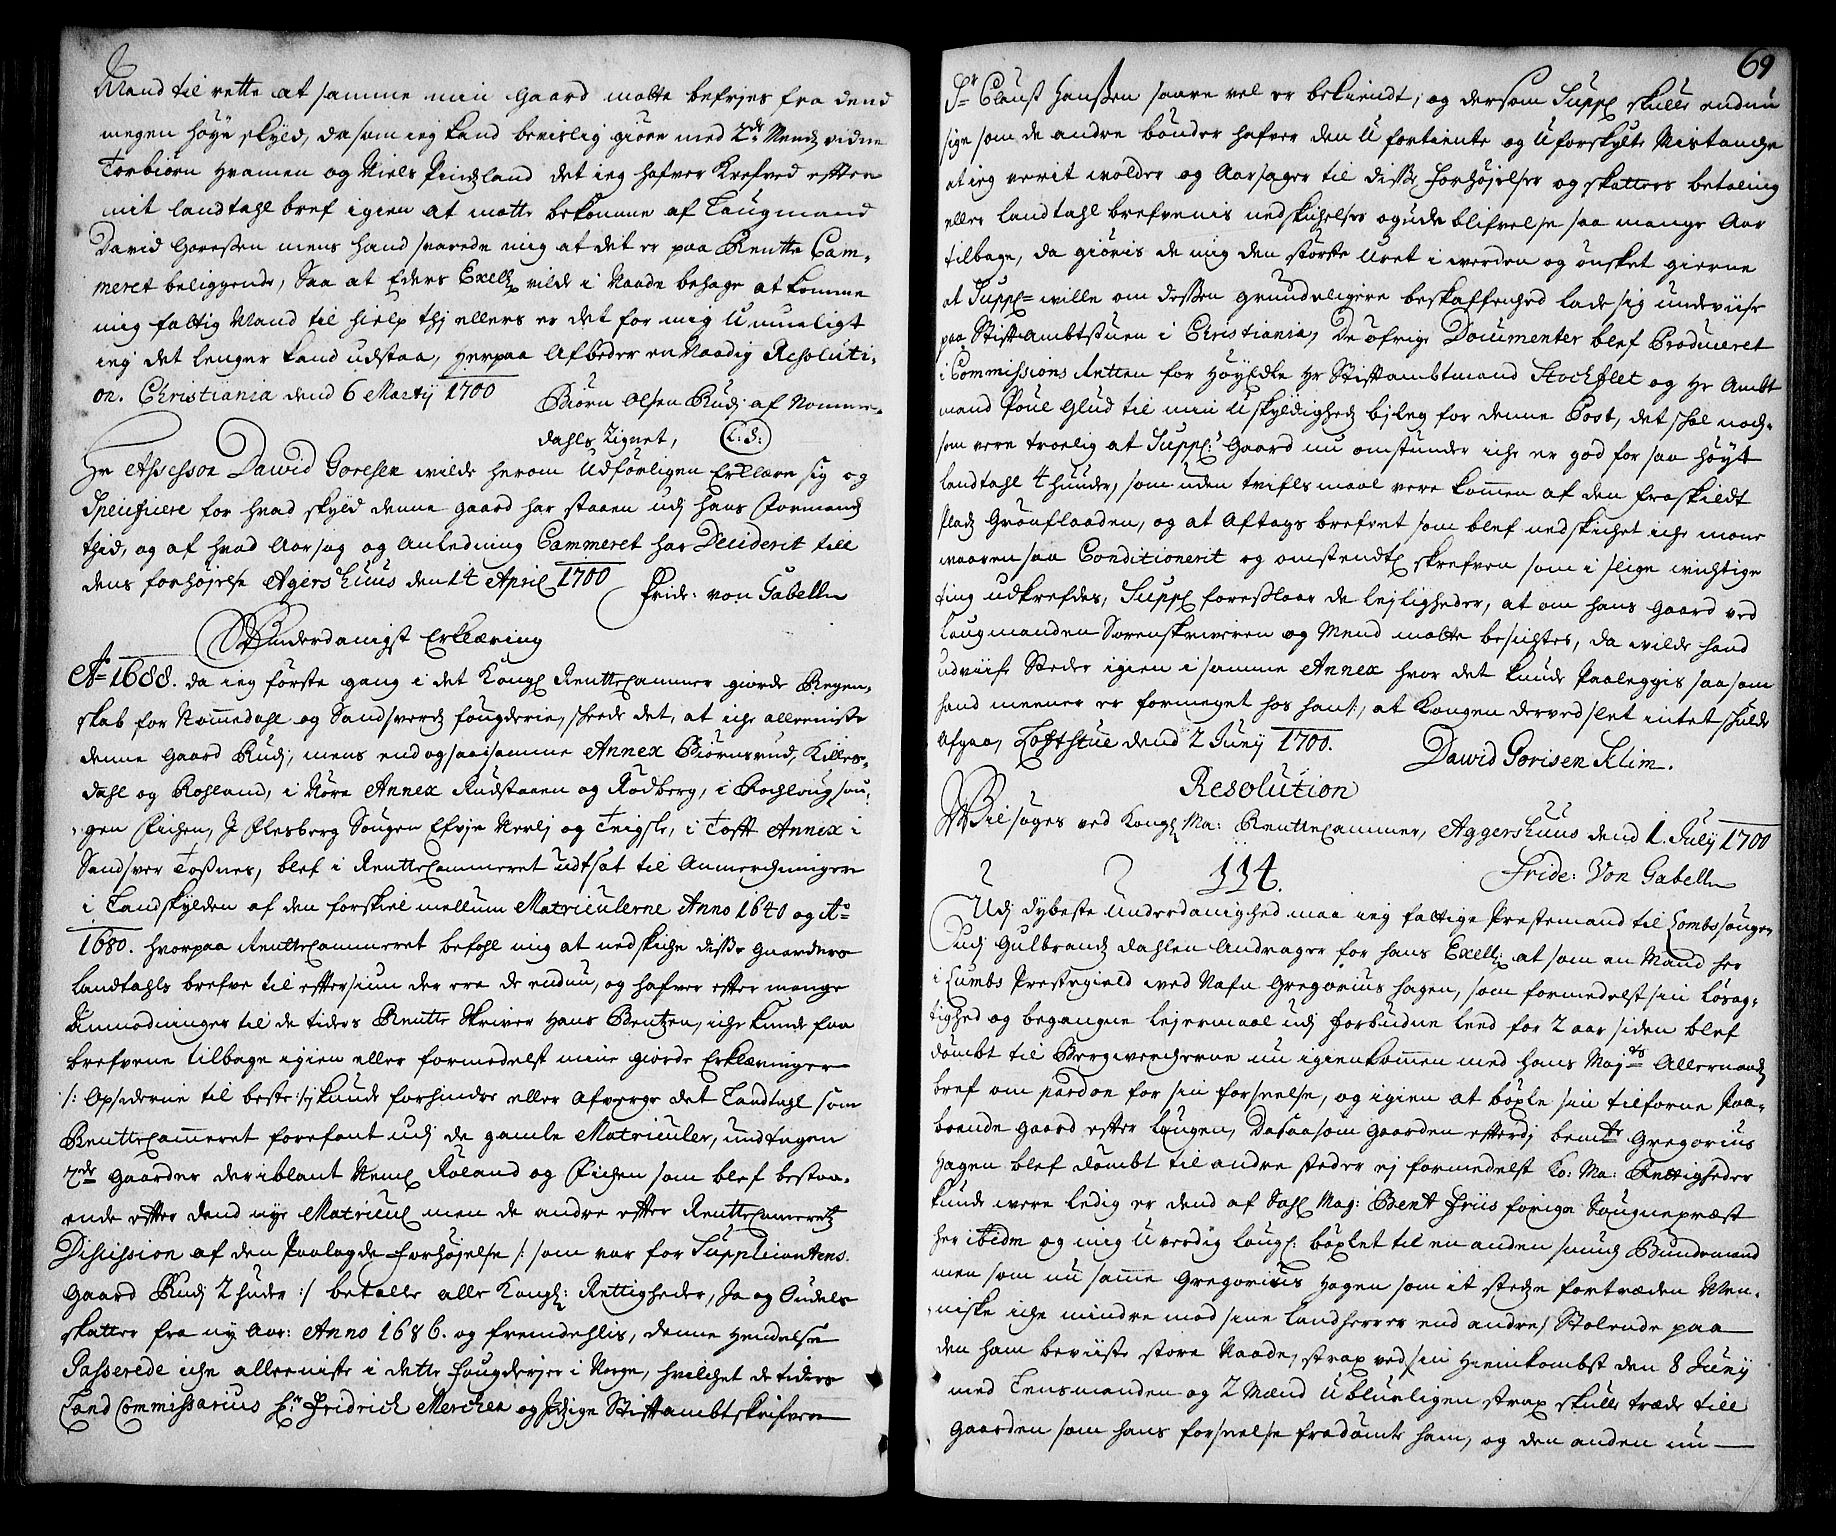 Mand til rette at samme min Gaard motte befrjes fra dend
megen höye skyld, da som ieg kand bevislig giöre med 2de Mends vidne
Torbiörn Framen og Niels Pindzland det ieg hafver Krefved efter
mit landtahl bref igien at motte bekomme af Laugmand
David Goreßen mens hand svarede mig at det er paa Rentte Cam-
meret beliggende, Saa at Eders Exell: vilde i Naade behage at komme
mig fattig Mand til hielp thj ellers er det for mig Umueligt
ieg det lenger kand udstaa, herpaa Afbeder en Naadig Resoluti-
on. Christiania dend 6 Martij 1700
Biörn Olsen Rudj af Nomme-
dahls Zignet, (L:S:)
Hr Assessor Dawid Goresen wilde herom Udförligen Erklære sig og
Speicificere for hvad skyld denne gaard har staaen udj hans Formands
thid, og af hvad Aarsag og Anledning Cammeret har Deciderit till
dens forhöjelse Agershuus den 14 April 1700
Fride: von Gabell
Underdanigst Erklæring
Ao 1688. da ieg förste gang i det Kongl Renttecammer giorde Regen-
skab for Nommedahl og Sandsverds fougderie, skeede det, at iche alleeniste
denne Gaard Rudj, mens end ogsaa i samme Annex Biörnsrud, Killes-
dahl og Rohland, i Nore Annex Rudstaaen og Rödberg, i Rochloug sou-
gen Eichen, I Flesberg Sougen Efvje Neelj og Trigste, i Toft Annex i
Sandsver Toßnes, blef i Renttecammeret udtsat til Anmerchninger
i Landskylden af den forskiel mellum Matriculerne Anno 1640 og Ao
1680. hvorpaa Renttecammeret befohl mig at nedskiche disse gaarders
landtahls brefve til eftersiun der ere de endnu, og hafver efter mange
Anmodninger til de tiders Rentte Skriver Hans Bentzen, iche kunde faa
brefvene tilbage igien eller formedelst mine giorde Erklæringer
/: Opsiderne til beste :/ kunde forhindre eller afverge det Landtahl som
Renttecammeret forefant udj de gamle Matriculer, undtagen
2de Gaarder deriblant Neml Roland og Eichen som blef bestaa-
ende efter dend nye Matricul men de andre efter Renttecammeretz
Discission af den Paalagde forhöjelse /: som var for Supplicantens
Gaard Rudj 2 huder :/ betalle alle Kongl: Rettigheder, Ja og Oudels
skatter fra ny Aar: Anno 1686. og fremdehlis, denne Hendelse
Passerede iche alleeniste i dette fougderjer i Norge, hvilchet de tiders
Land Commissarius Hr. Fridrich Merchen og Jtzige Stiftambtskrifver
69
Sr Clauß Hanßen saare vel er bekiendt; og dersom Suppl skulle endnu
sige som de andre bönder hafver den U fortiente og Uforskylte Mistanche
at ieg verit volder og Aarsager til disse forhöjelser og skatters betaling
eller Landtahl brefvenis nedskichelse og ude blifvelse saa mange Aar
tilbage, da giöris de mig den störste Uret i werden og önsket gierne
at Suppl wille om dessen grundeligere beskaffenhed lade sig underviise
paa Stiftambtstuen i Christiania, De öfrige Documenter blef Produceret
i Commissions Retten for Höyedle Hr Stiftambtmand Stochflet og Hr Ambt
mand Poul Glud til min Uskyldigheds bjleg for denne Post, det skal noch-
som vere troelig at Suppl: Gaard nu omstunder iche er god for saa höyt
Landtahl 4 huuder, som uden trifls maal vere kommen af den fraskildt
Plads Grönflaaden, og at Aftags brefvet som blef nedskichet iche mone
waaren saa Conditionerit og omstendtl skrefven som i slige wichtige
ting udkrefdes, Suppl foreslaar de lejligheder, at om hans Gaard ved
Laugmanden Sorenskriveren og Mend motte besichtes, da wilde hand
udviise Steder igien i samme Annex hvor det kunde Paaleggis saasom
hand meener er formeget hos hans, at Kongen derved slet intet skulde
Afgaa, Loftstue dend 2 Junij 1700.
Dawid Gorisen Klim.
Resolution
Wil söges ved Kongl Ma: Renttecammer, Aggershuus dend 1. July 1700
Fride: Von Gabell
114.
Udj dybeste Underdanighed maa ieg fattige Prestemand til Lombs souge
udj Gulbrands dahlen Andrager for hans Exell: at som en Mand her
i Lumbs Prestegield ved Nafn Gregorius Hagen, som formedelst sin Lösag-
tighed og begangne lejermaal udj forbudne leed for 2 aar siden blef
dömbt til Bergwercherne nu igienkommen med hans Mayts Allernaads
bref om pardon for sin forseelse, og igien at böxle sin tilforne Paa-
boende gaard efter Lougen, Da saasom Gaarden efterdj bemte Gregorius
Hagen blef dömbt til andre steder ej formedelst Ko: Ma: Rettigheder
kunde were ledig er dend af Sahl Mag: Bent Friis forige Sougneprest
her ibidm og mig Uverdig lougl: böxlet til en anden smuch Bundemand
men som nu samme Gregorius Hagen som it stedze fortræden Men-
niske iche mindre mod sine landherrer end andre, Stolende paa
den ham beviiste store Naade, strax ved sin Hiemkombst den 8 Junij
med Lensmanden og 2 Mænd Ublueligen strax skulle træde till
Gaarden som hans forseelse fradömte ham, og den anden nu